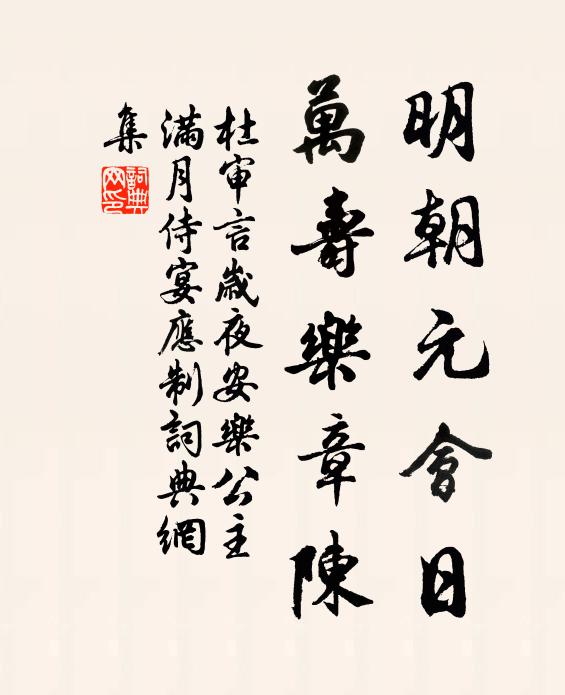 明朝元會日
萬壽樂章陳
杜審言歲夜安樂公主
滿月侍宴應制詞典網
集
詞典
网印